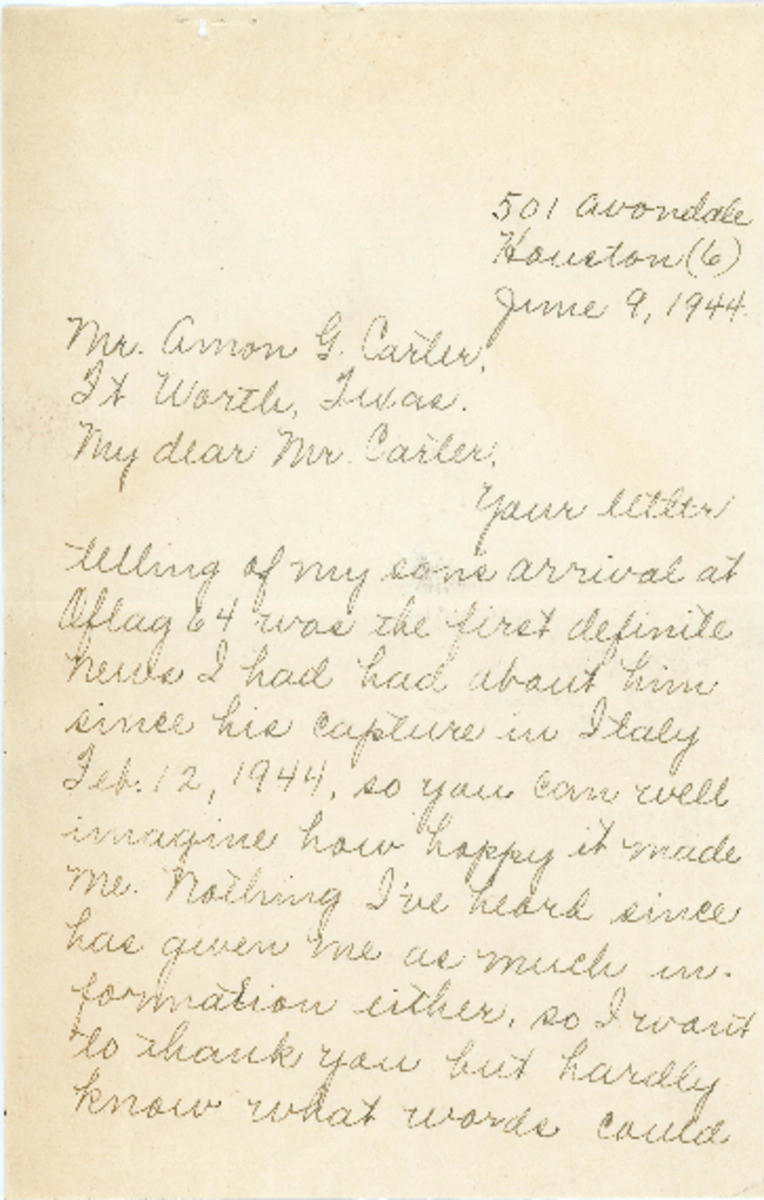 501 Avondale
Houston (6)
June 9, 1944.
Mr. Amon G. Carter,
Ft Worth, Texas.
My dear Mr. Carter,
Your letter
telling of my son's arrival at
Oflag 64 was the first definite
news I had had about him
since his capture in Italy
Feb. 12, 1944, so you can well
imagine how happy it made
me. Nothing I've heard since
has given me as much in-
formation either, so I want
to thank you but hardly
know what words could